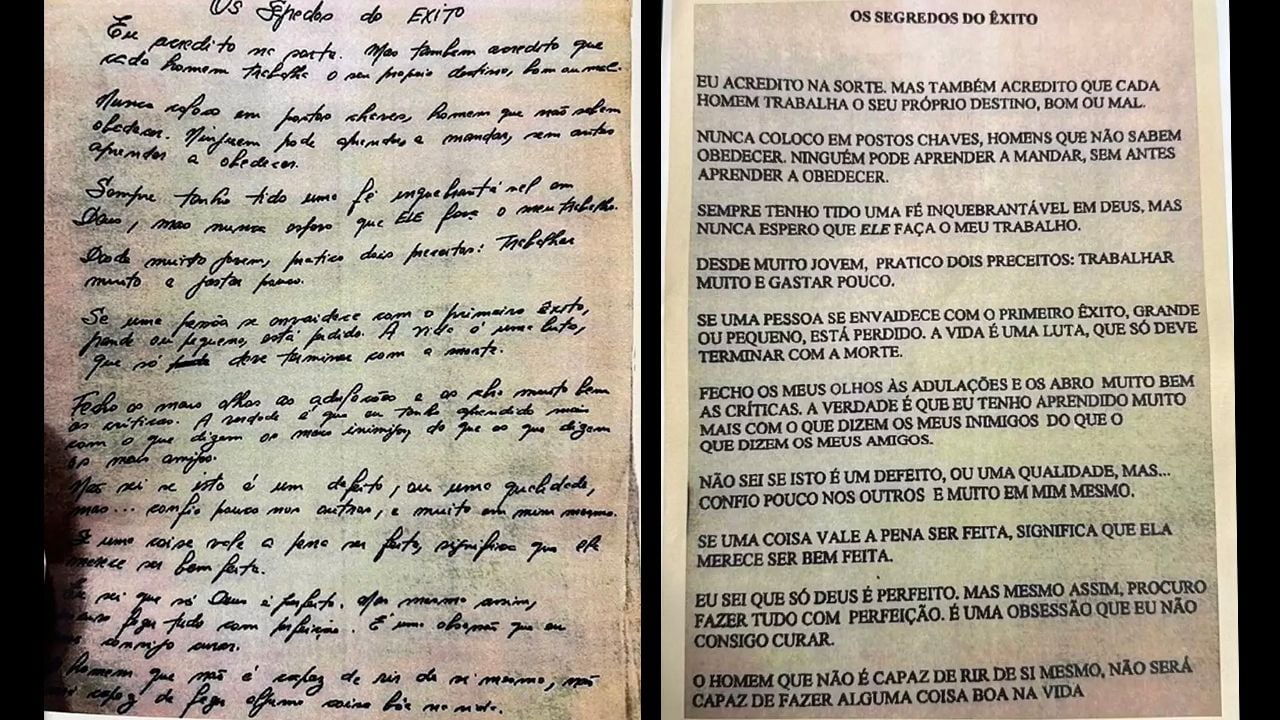 Os Segredos do EXITO
Eu acredito na sorte. Mas tambem acredito que
cada homem trabalha o seu próprio destino, bom ou mal.
Nunca coloco em postos chaves, homem que não sabem
obedecer. Ninguem pode aprender a mandar, sem antes
aprender a obedecer.
Sempre tenho tido uma fé inquebrantável em
Deus, mas nunca espero que ELE faça o meu trabalho.
Desde muito jovem, pratico dois preceitos: Trabalhar
muito e gastar pouco.
Se uma pessoa se envaidece com o primeiro Êxito,
grande ou pequeno, está perdido. A vida é uma luta,
que só deve terminar com a morte.
Fecho os meus olhos as adulações e os abro muito bem
as criticas. A verdade é que eu tenho aprendido mais
com o que dizem os meus inimigos, do que os que dizem
os meus amigos.
Não sei se isto é um defeito, ou uma qualidade,
mas... confio pouco nos outros, e muito em mim mesmo.
Se uma coisa vale a pena ser feita, significa que ela
merece ser bem feita.
Eu sei que só Deus é perfeito. Mas mesmo assim,
fazer tudo com perfeição. É uma obsessão que eu
consigo curar.
homem que não é capaz de rir de si mesmo, não
capaz de fazer alguma coisa bôa na vida.
OS SEGREDOS DO ÊXITO
EU ACREDITO NA SORTE. MAS TAMBÉM ACREDITO QUE CADA
HOMEM TRABALHA O SEU PRÓPRIO DESTINO, BOM OU MAL.
NUNCA COLOCO EM POSTOS CHAVES, HOMENS QUE NÃO SABEM
OBEDECER. NINGUÉM PODE APRENDER A MANDAR, SEM ANTES
APRENDER A OBEDECER.
SEMPRE TENHO TIDO UMA FÉ INQUEBRANTÁVEL EM DEUS, MAS
NUNCA ESPERO QUE ELE FAÇA O MEU TRABALHO.
DESDE MUITO JOVEM, PRATICO DOIS PRECEITOS: TRABALHAR
MUITO E GASTAR POUCO.
SE UMA PESSOA SE ENVAIDECE COM O PRIMEIRO ÊXITO, GRANDE
OU PEQUENO, ESTÁ PERDIDO. A VIDA É UMA LUTA, QUE SÓ DEVE
TERMINAR COM A MORTE.
FECHO OS MEUS OLHOS ÀS ADULAÇÕES E OS ABRO MUITO BEM
AS CRÍTICAS. A VERDADE É QUE EU TENHO APRENDIDO MUITO
MAIS COM O QUE DIZEM OS MEUS INIMIGOS DO QUE O
QUE DIZEM OS MEUS AMIGOS.
NÃO SEI SE ISTO É UM DEFEITO, OU UMA QUALIDADE, MAS...
CONFIO POUCO NOS OUTROS E MUITO EM MIM MESMO.
SE UMA COISA VALE A PENA SER FEITA, SIGNIFICA QUE ELA
MERECE SER BEM FEITA.
EU SEI QUE SÓ DEUS É PERFEITO. MAS MESMO ASSIM, PROCURO
FAZER TUDO COM PERFEIÇÃO. É UMA OBSESSÃO QUE EU NÃO
CONSIGO CURAR.
O HOMEM QUE NÃO É CAPAZ DE RIR DE SI MESMO, NÃO SERÁ
CAPAZ DE FAZER ALGUMA COISA BOA NA VIDA